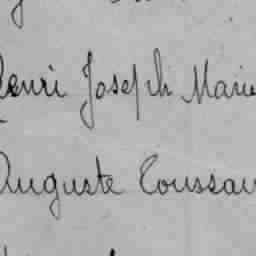 Henri Joseph Marie
Auguste Toussain